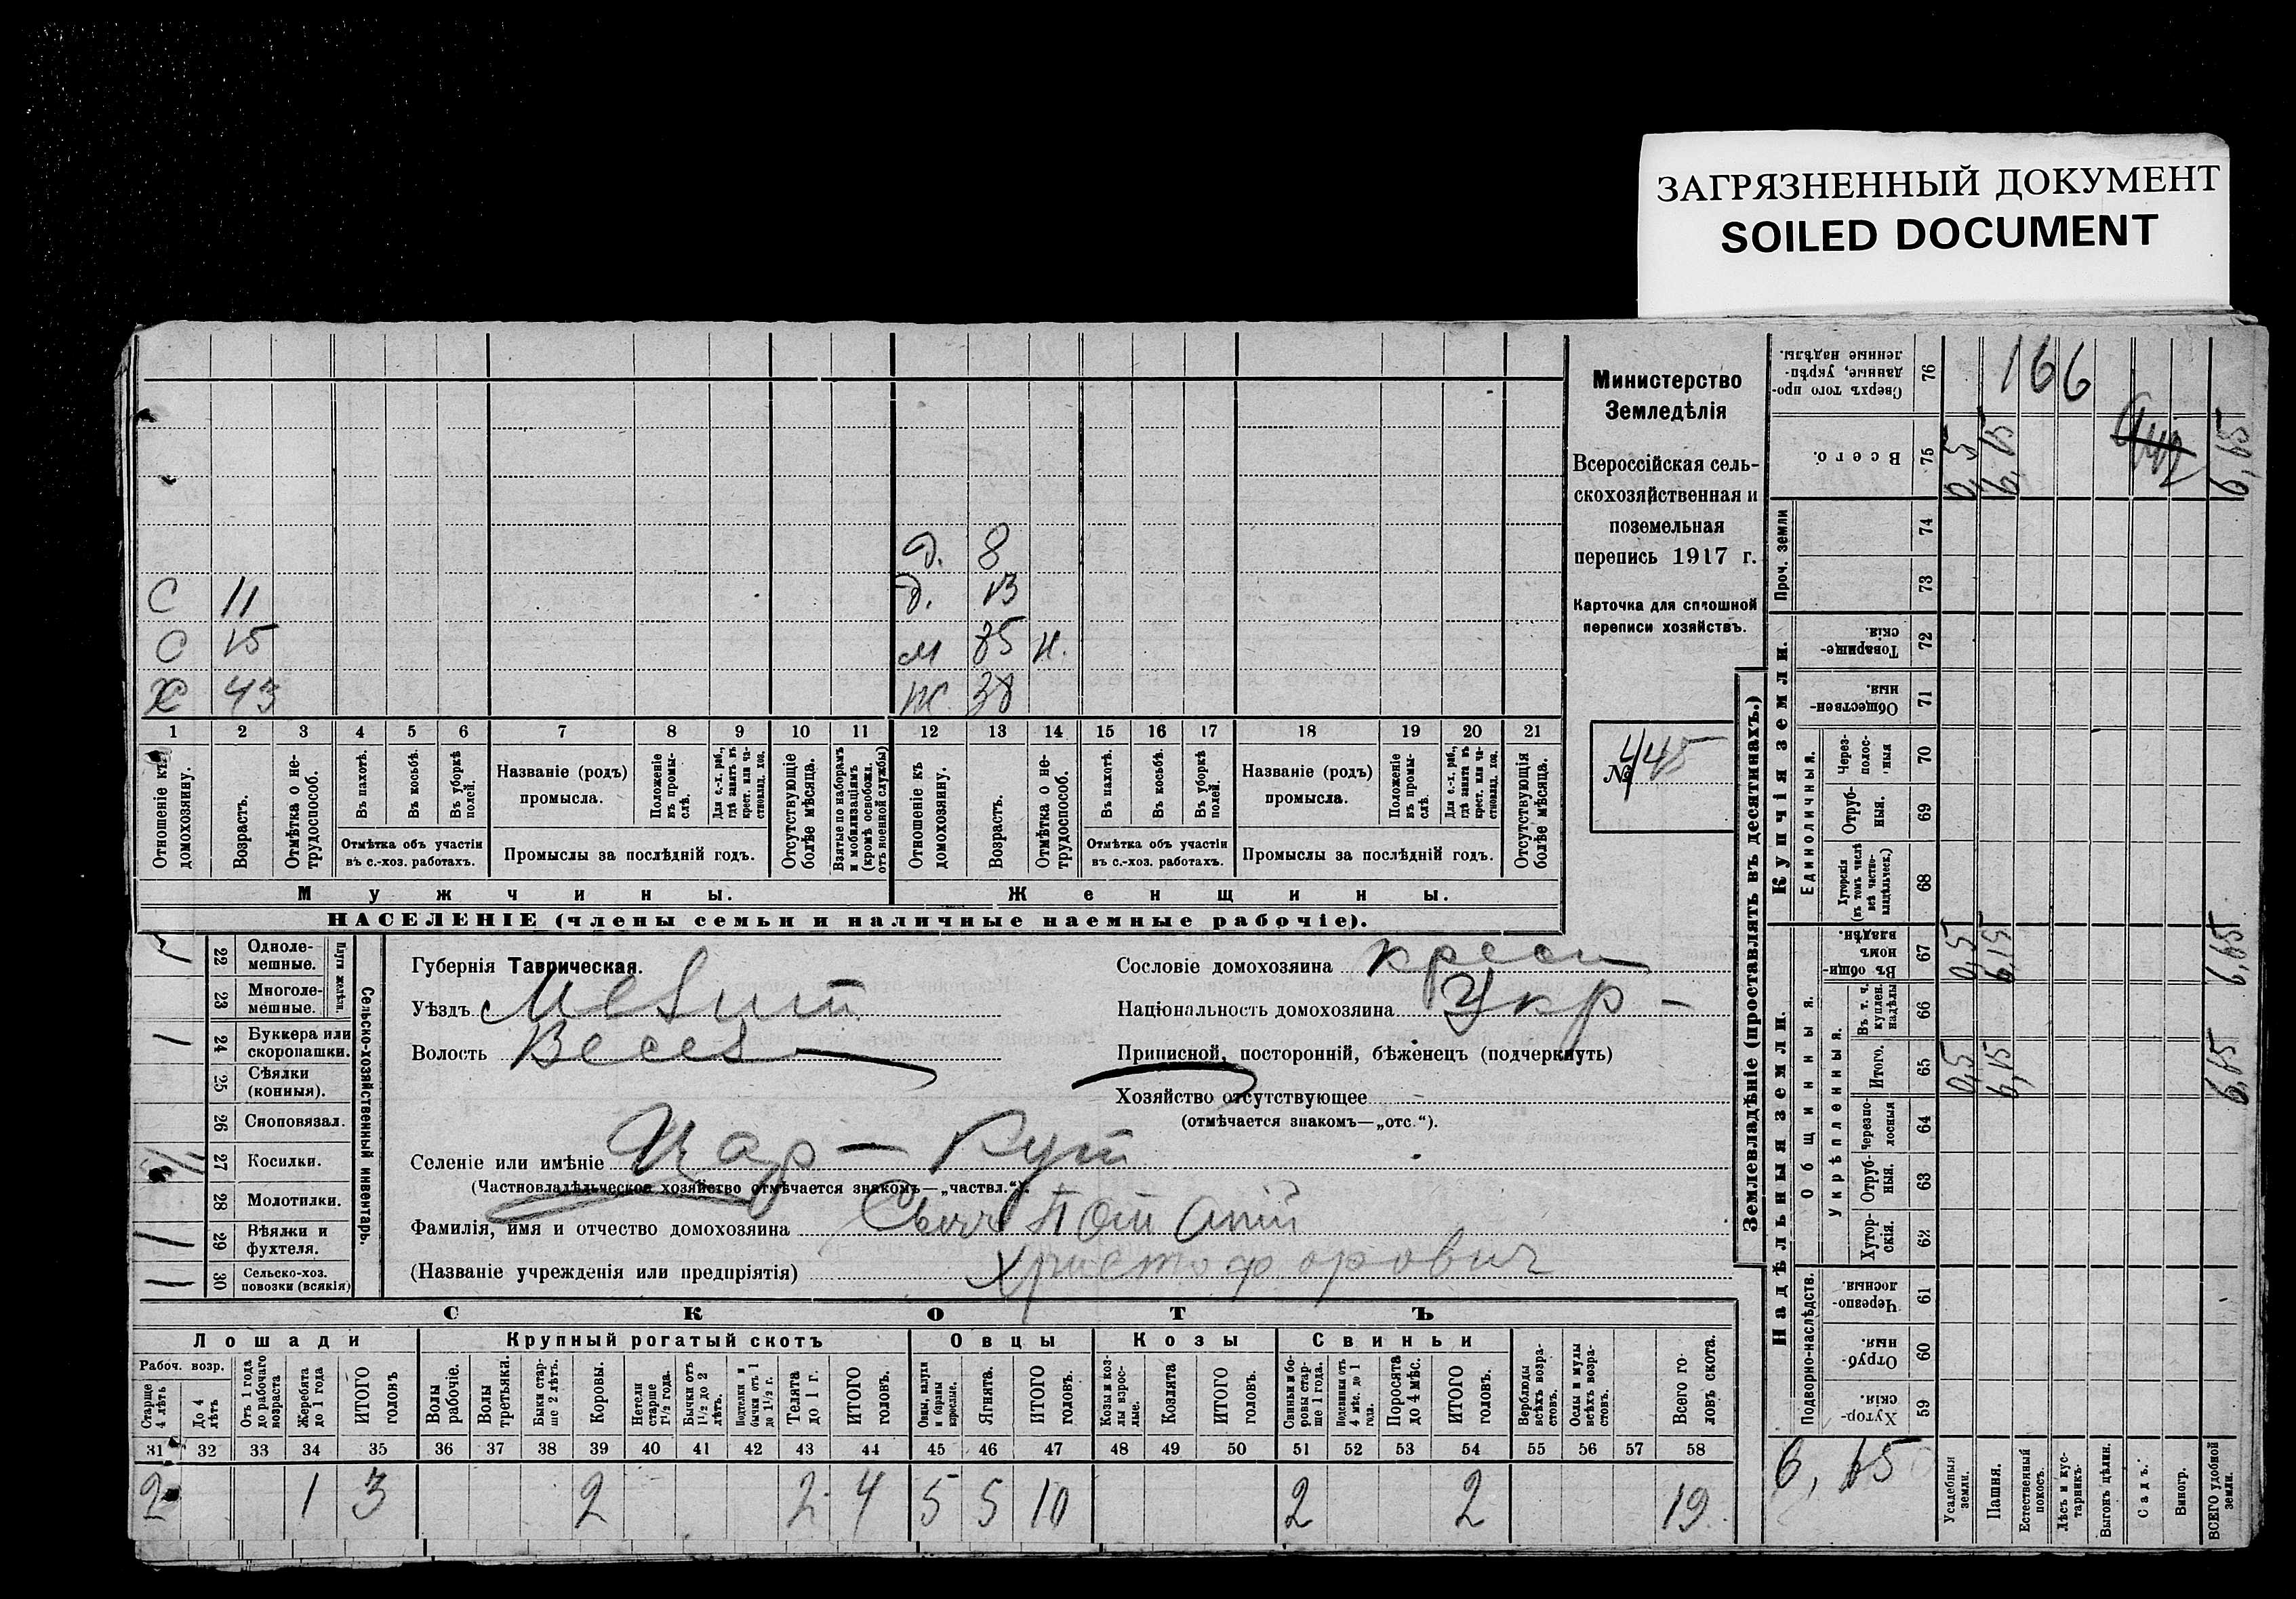 ЗАГРЯЗНЕННЫЙ ДОКУМЕНТ
SOILED DOCUMENT
д. 8
С 11 д. 13
С 15 м 85 н.
Х 43 ж. 38
1 2 3 4 5 6 7 8 9 10 11 12 13 14 15 16 17 18 19 20 21
Отношеніе къ домохозяину.
Возрастъ.
Отмѣтка о нетрудоспособ.
Въ пахотѣ.
Въ косьбѣ.
Въ уборкѣ полей.
Отмѣтка объ участіи въ с.-хоз. работахъ.
Названіе (родъ) промысла.
Положеніе въ промыслѣ.
Для с.-х. раб., гдѣ занятъ въ крест. или частновлад. хоз.
Промыслы за послѣдній годъ.
Отсутствующіе болѣе мѣсяца.
Взятые по наборамъ и мобилизаціямъ (кромѣ освобожд. отъ военной службы)
Отношеніе къ домохозяину.
Возрастъ.
Отмѣтка о нетрудоспособ.
Въ пахотѣ.
Въ косьбѣ.
Въ уборкѣ полей.
Отмѣтка объ участіи въ с.-хоз. работахъ.
Названіе (родъ) промысла.
Положеніе въ промыслѣ.
Для с.-х. раб., гдѣ занята въ крест. или частновлад. хоз.
Промыслы за послѣдній годъ.
Отсутствующія болѣе мѣсяца.
Мужчины. Женщины.
НАСЕЛЕНІЕ (члены семьи и наличные наемные рабочіе).
Министерство
Земледѣлія
Всероссійская сель-
скохозяйственная и
поземельная
перепись 1917 г.
Карточка для сплошной
переписи хозяйствъ.
№ 445
Сельско-хозяйственный инвентарь.
Плуги желѣзн.
22 Однолемешные.
23 Многолемешные.
1 24 Буккера или скоропашки.
25 Сѣялки (конныя).
26 Сноповязал.
27 Косилки.
28 Молотилки.
1 29 Вѣялки и фухтеля.
1 30 Сельско-хоз. повозки (всякія)
Губернія Таврическая.
Уѣздъ Мелит
Волость Весел
Сословіе домохозяина крест
Національность домохозяина Укр-
Приписной, посторонній, бѣженецъ (подчеркнуть)
Хозяйство отсутствующее
(отмѣчается знакомъ—„отс.“).
Селеніе или имѣніе Цар-Кут
(Частновладѣльческое хозяйство отмѣчается знакомъ—„частвл.“).
Фамилія, имя и отчество домохозяина Сыч
(Названіе учрежденія или предпріятія) Христофорович
СКОТЪ
Лошади Крупный рогатый скотъ Овцы Козы Свиньи
Рабоч. возр.
Старше 4 лѣтъ
До 4 лѣтъ
Отъ 1 года до рабочаго возраста
Жеребята до 1 года
ИТОГО головъ
Волы рабочіе.
Волы третьяки.
Быки старше 2 лѣтъ.
Коровы.
Нетели старше 1½ года.
Бычки отъ 1½ до 2 лѣтъ.
Подтелки и бычки отъ 1 до 1½ г.
Телята до 1 г.
ИТОГО головъ.
Овцы, валухи и бараны взрослые.
Ягнята.
ИТОГО головъ.
Козы и козлы взрослые.
Козлята
ИТОГО головъ.
Свиньи и боровы старше 1 года.
Подсвинки отъ 4 мѣс. до 1 года.
Поросята до 4 мѣс.
ИТОГО головъ.
Верблюды всѣхъ возрастовъ.
Ослы и мулы всѣхъ возрастовъ.
Всего головъ скота.
31 32 33 34 35 36 37 38 39 40 41 42 43 44 45 46 47 48 49 50 51 52 53 54 55 56 57 58
2 1 3 2 2 4 5 5 10 2 2 19
Землевладѣніе (проставлять въ десятинахъ.)
Надѣльныя земли. Купчія земли. Проч. земли
Подворно-наслѣдств. Общинныя. Укрѣпленныя. Единоличныя.
Сверхъ того проданные, укрѣпленные надѣлы. 76 166
Всего. 75 0,5 6,15 6,65
74
73
Товарищескія. 72
Общественныя. 71
Черезполосныя 70
Отрубныя. 69
Хуторскія (въ томъ числѣ всѣ частновладѣльческ.) 68
Въ общинномъ владѣн. 67 0,5 6,15 6,65
Въ т. ч. куплен. надѣлы 66
Итого. 65 0,5 6,15 6,65
Черезполосныя 64
Отрубныя. 63
Хуторскія. 62
Черезполосныя. 61
Отрубныя. 60
Хуторскія. 59
6,15
Усадебныя земли.
Пашня.
Естественный покосъ.
Лѣсъ и кустарникъ.
Выгонъ цѣлин.
Садъ.
Виногр.
ВСЕГО удобной земли.